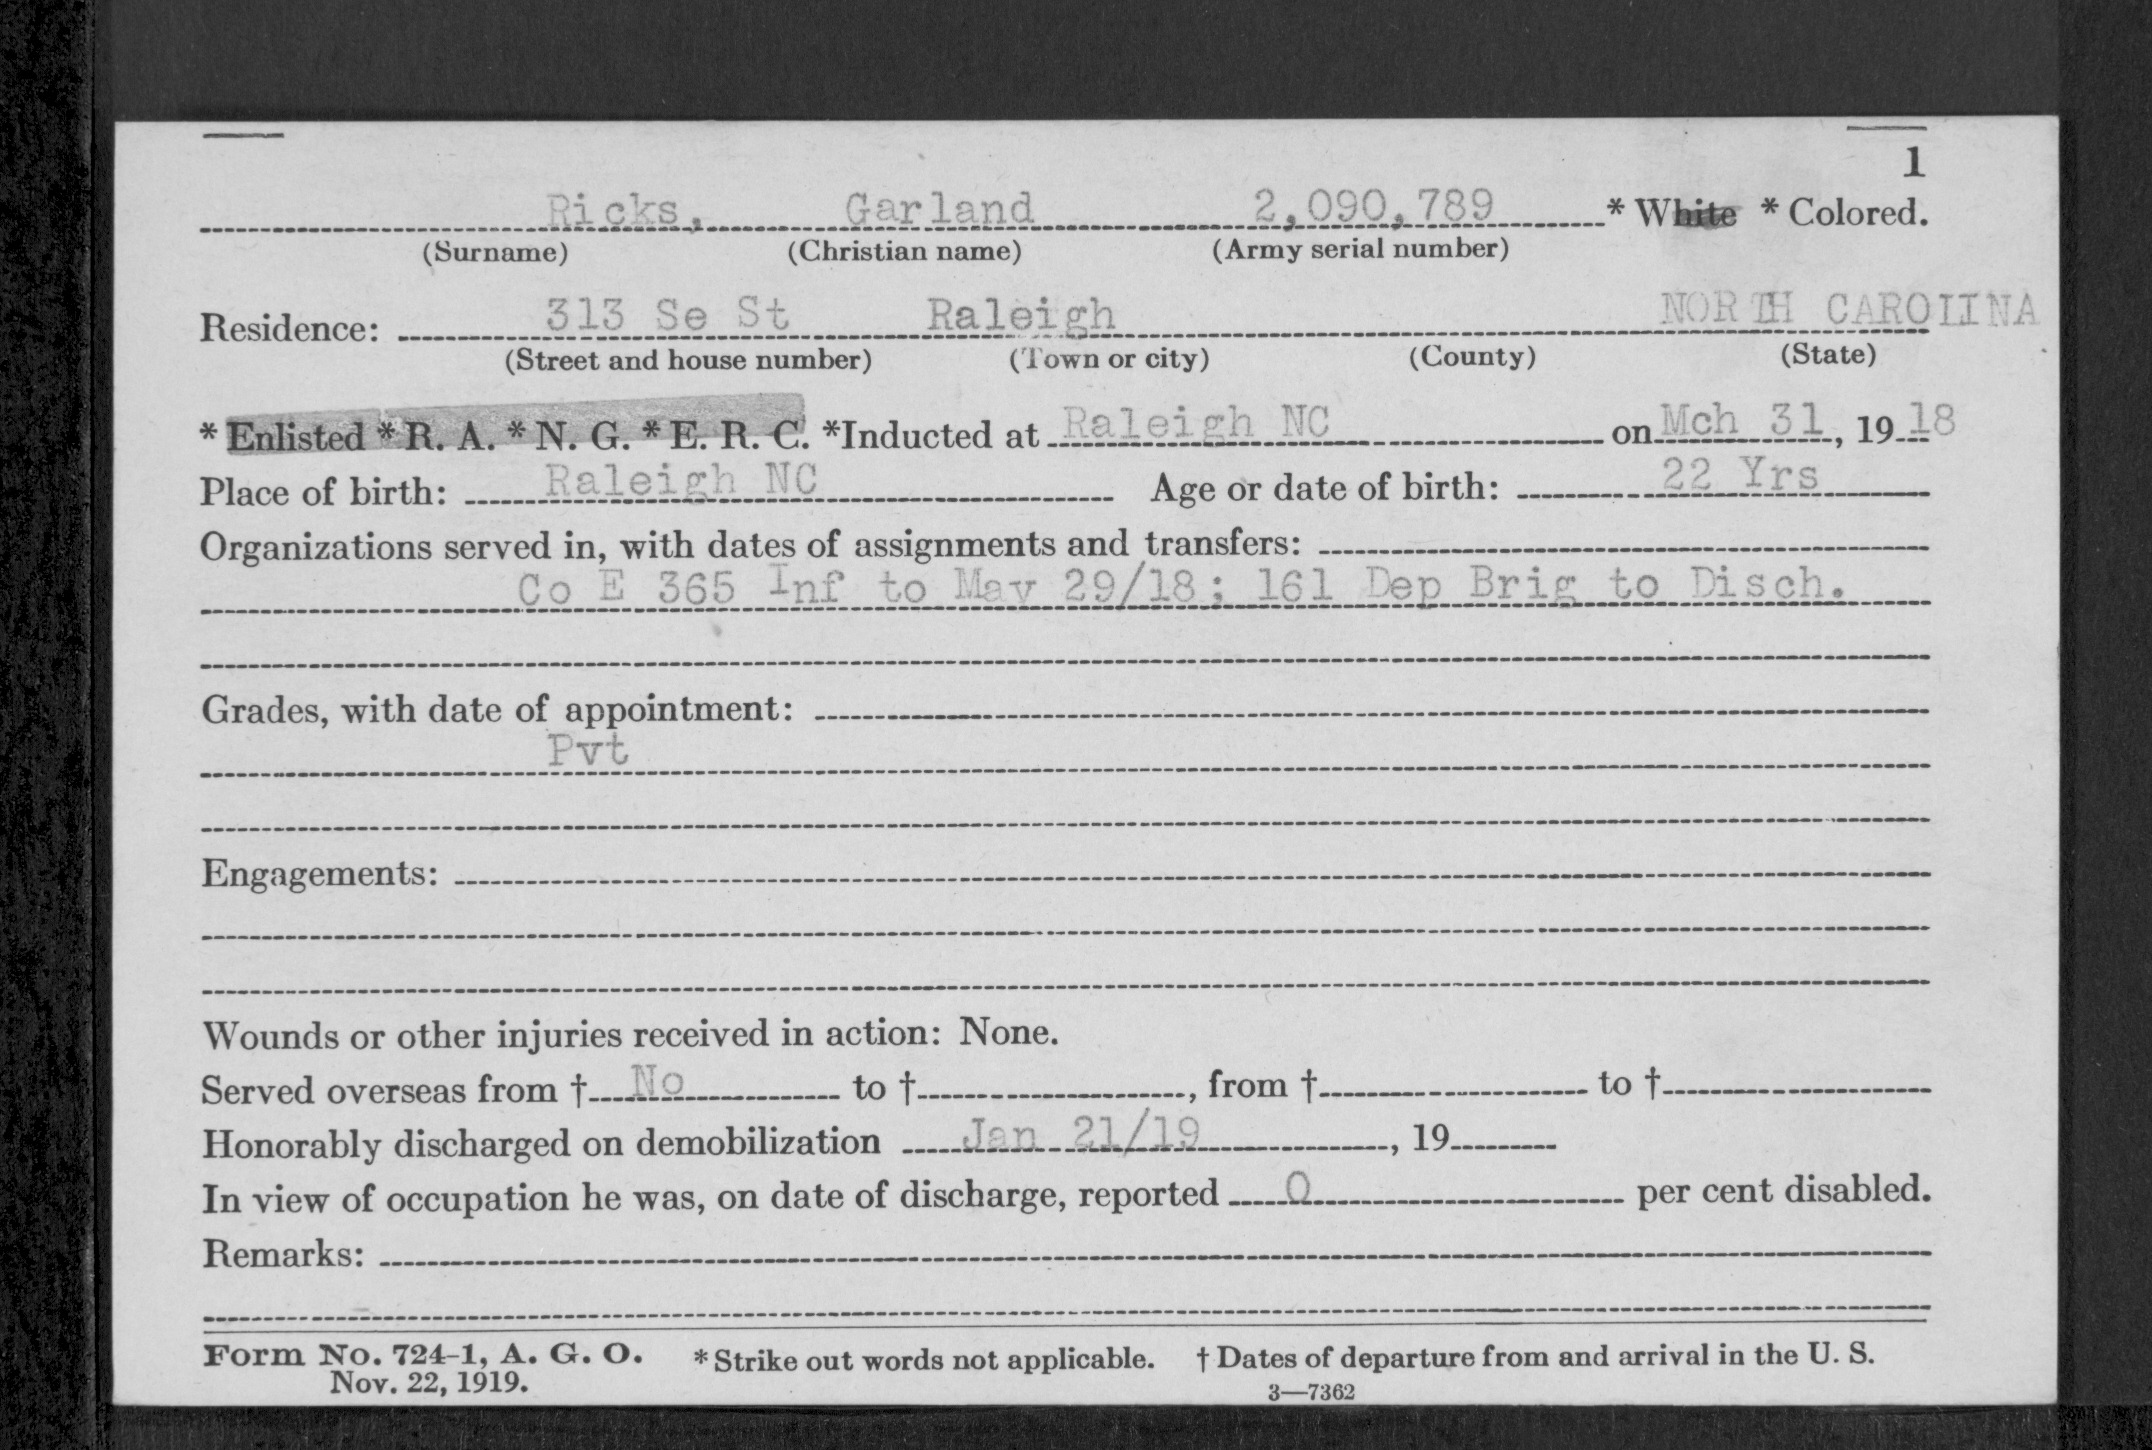 1
Ricks, Garland 2,090,789 * White * Colored.
(Surname) (Christian name) (Army serial number)
Residence: 313 Se St Raleigh NORTH CAROLINA
(Street and house number) (Town or city) (County) (State)
* Enlisted * R. A. * N. G. * E. R. C. *Inducted at Raleigh NC on Mch 31, 1918
Place of birth: Raleigh NC Age or date of birth: 22 Yrs
Organizations served in, with dates of assignments and transfers:
Co E 365 Inf to May 29/18; 161 Dep Brig to Disch.
Grades, with date of appointment:
Pvt
Engagements:
Wounds or other injuries received in action: None.
Served overseas from † No to †, from † to †
Honorably discharged on demobilization Jan 21/19, 19
In view of occupation he was, on date of discharge, reported 0 per cent disabled.
Remarks:
Form No. 724-1, A. G. O. * Strike out words not applicable. † Dates of departure from and arrival in the U. S.
Nov. 22, 1919. 3—7362